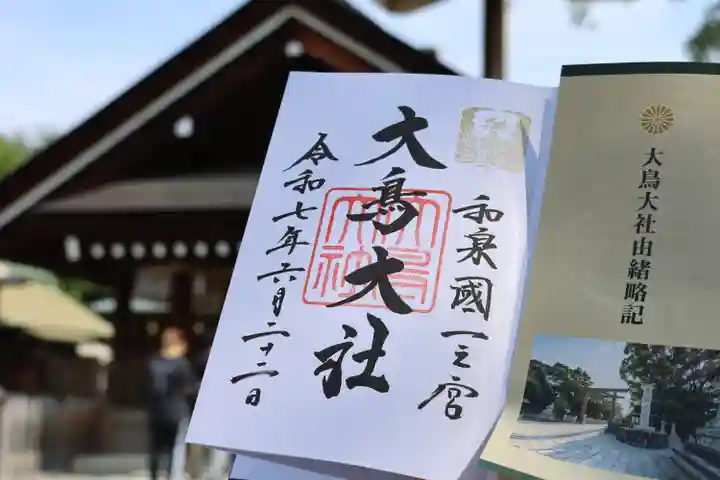 大鳥大社由緒略記
和泉國一之宮
大鳥大社
大鳥大社
令和七年六月二十二日